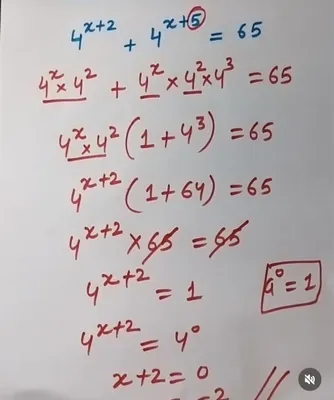 4^{x+2} + 4^{x+5} = 65
4^x × 4^2 + 4^x × 4^2 × 4^3 = 65
4^x × 4^2 (1 + 4^3) = 65
4^{x+2} (1 + 64) = 65
4^{x+2} × 65 = 65
4^{x+2} = 1
4^0 = 1
4^{x+2} = 4^0
x + 2 = 0
= -2 //